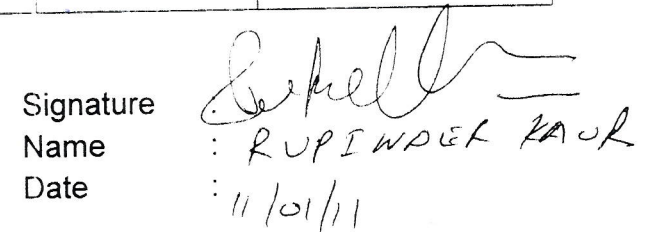 Signature :
Name : RUPINDER KAUR
Date : 11/01/11